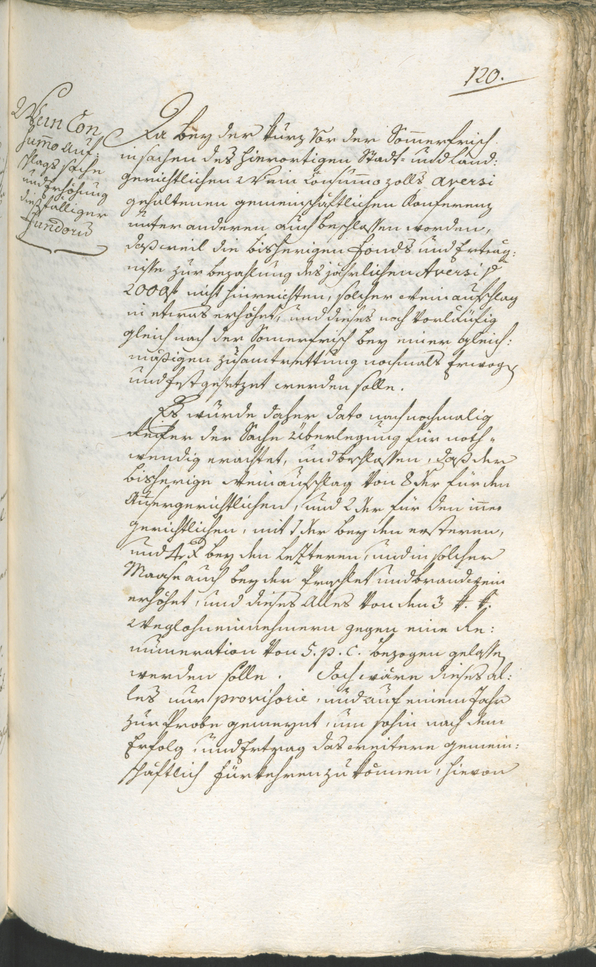 120.
Wein Con
summo Auf=
schlags sache
und Erhöhung
diesfälliger
Fundorum
Da bey der kurz vor der Sommerfrisch
in sachen des hierortigen Stadt- und Land=
gerichtlichen Wein Consummozolls Aversi
gehaltenen gemeinschaftlichen Konferenz
unter anderen auch beschlossen worden,
daß weil die bisherigen Fonds und Erträg=
nisse zur bezahlung des jährlichen Aversi p
2000 f nicht hinreichten, solcher Weinaufschlag
in etwas erhöhet, und dieses noch vorläufig
gleich nach der Sommerfrisch bey einer gleich=
mäßigen Zusamtrettung nochmals erwogen
und festgesetzet werden solle.
Es wurde daher dato nach nochmalig
reifer der Sache Überlegung für noth=
wendig erachtet, und beschlossen, daß der
bisherige Weinaufschlag von 8 der für den
Aussergerichtlichen, und 2 der für den inner
gerichtlichen, mit 1 der bey den ersteren,
und 4 bey den Letzteren, und in solcher
Maase auch bey der und brandwein
erhöhet, und dieses Alles von den 3
Weglohneinnehmern gegen eine Re=
muneration von 5. p. C. bezogen gelassen
werden solle. Doch wäre dieses al=
les nur provisorie, und auf einem Jahr
zur Probe gemeynt, um sohin nach dem
Erfolg, und Ertrag das weitere gemein=
schaftlich fürkehren zu können, hievon